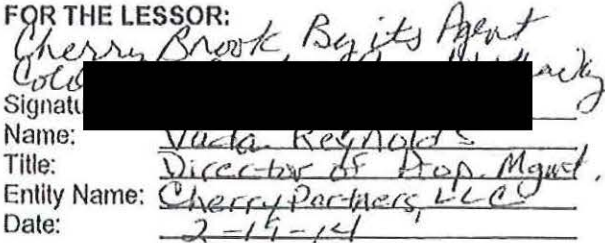 FOR THE LESSOR:
Cherry Brook By its Agent
Signatu
Name: Vada Reynolds
Title: Director of Prop. Mgmt.
Entity Name: Cherry Partners, LLC
Date: 2-19-14